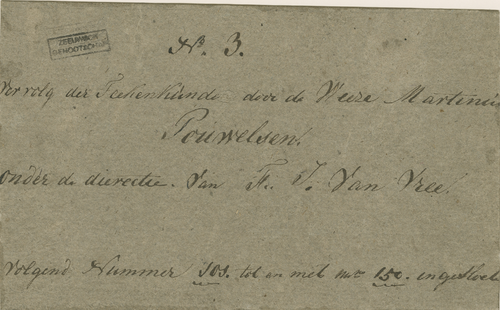 ZEEUWSCH
GENOOTSCHAP
No. 3.
Vervolg der Teekenkunde door de Weeze Martinus
Pouwelsen.
onder de dierectie. Van F. J. Van Vree.
Volgend Nummer 101. tot en met No 150. ingesloten